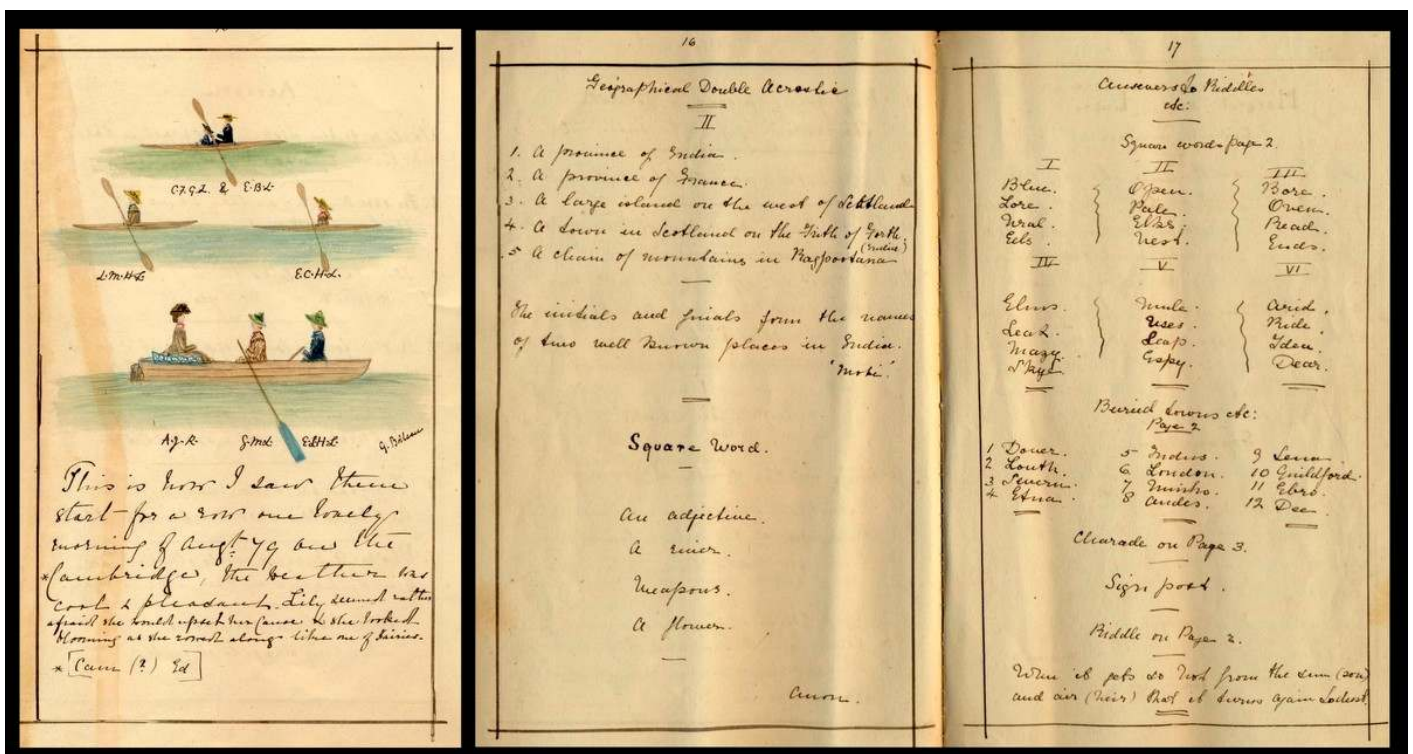 C.F.G.L. & E.B.L.
L.M.H.L. E.C.H.L.
A.J.R. G.M.L. E.L.H.L.
This is how I saw them
start for a row one lovely
morning of Augt. 79 on the
*Cambridge, the weather was
cool & pleasant. Lily seemed rather
afraid she would upset her Canoe & she looked
blooming as she rowed along like one of
* [Cam (?) Ed]
16
Geographical Double Acrostic
II
1. A province of India.
2. A province of France.
3. A large island on the west of Scotland
4. A town in Scotland on the Frith of Forth.
5 A chain of mountains in Ragpootana (India)
The initials and finals form the names
of two well known places in India.
"Moti".
Square Word.
An adjective.
A river.
Weapons.
A flower.
Anon.
17
Answers to Riddles
etc:
Square words page 2.
I II III
Blue. Open. Bore.
Lore. Pale. Oven.
Ural. Elks. Read.
Eels. Nest. Ends.
IV V VI
Elms. Mule. Arid.
Leaz. Uses. Ride.
Mazy. Leap. Idea.
Skye. Espy. Dear.
Buried towns etc:
Page 2
1 Dover. 5 Indus. 9 Lena.
2 Louth. 6 London. 10 Guildford.
3 Severn. 7 Minho. 11 Ebro.
4 Etna. 8 Andes. 12 Dee.
Charade on Page 3.
Sign post.
Riddle on Page 2.
When it gets so hot from the sun (son)
and air (heir) that it turns again to dust.